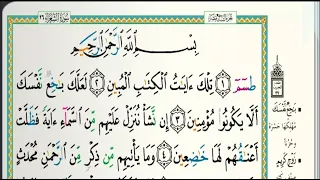 سورة الشعراء ٢٦
بِسْمِ اللَّهِ الرَّحْمَٰنِ الرَّحِيمِ
طسٓمٓ ١ تِلْكَ ءَايَٰتُ ٱلْكِتَٰبِ ٱلْمُبِينِ ٢ لَعَلَّكَ بَٰخِعٌ نَّفْسَكَ
أَلَّا يَكُونُوا۟ مُؤْمِنِينَ ٣ إِن نَّشَأْ نُنَزِّلْ عَلَيْهِم مِّنَ ٱلسَّمَآءِ ءَايَةً فَظَلَّتْ
أَعْنَٰقُهُمْ لَهَا خَٰضِعِينَ ٤ وَمَا يَأْتِيهِم مِّن ذِكْرٍ مِّنَ ٱلرَّحْمَٰنِ مُحْدَثٍ